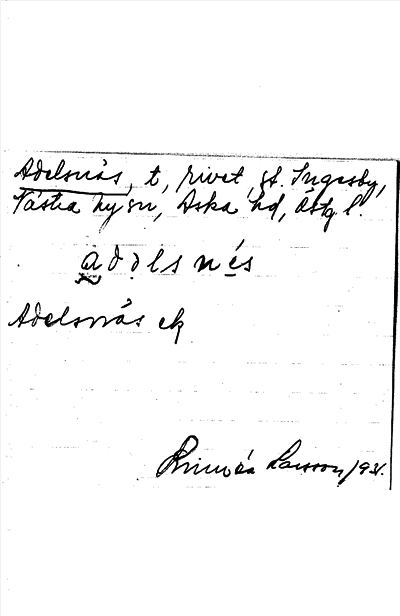 Adelsnäs, t, rivet, gt. Ingesby,
Västra Ny sn, Aska hd, Östg l.
adəlsnɛ́s
Adelsnäs ek
Larsson 1931.